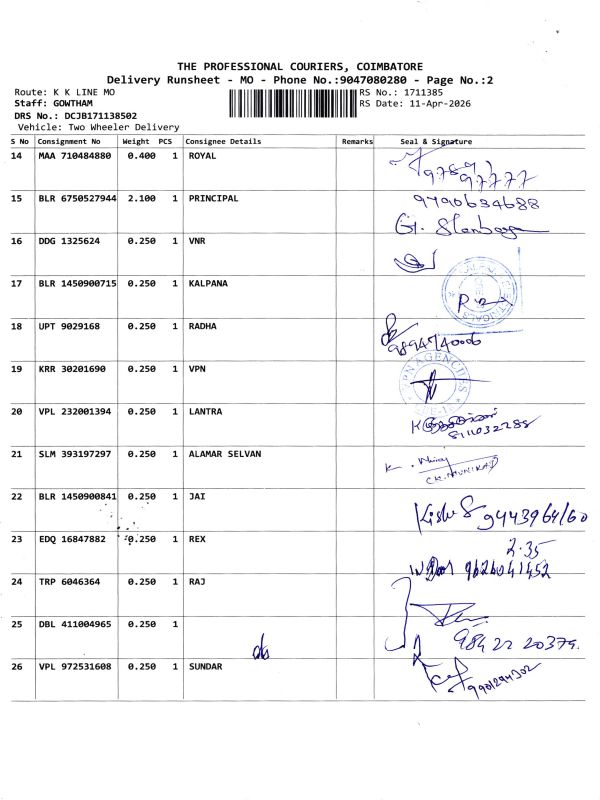 THE PROFESSIONAL COURIERS, COIMBATORE
Delivery Runsheet - MO - Phone No.:9047080280 - Page No.:2
Route: K K LINE MO
Staff: GOWTHAM
DRS No.: DCJB171138502
Vehicle: Two Wheeler Delivery
RS No.: 1711385
RS Date: 11-Apr-2026
S No Consignment No Weight PCS Consignee Details Remarks Seal & Signature
14 MAA 710484880 0.400 1 ROYAL
97897 97777
15 BLR 6750527944 2.100 1 PRINCIPAL 9790634688
16 DDG 1325624 0.250 1 VNR
17 BLR 1450900715 0.250 1 KALPANA
18 UPT 9029168 0.250 1 RADHA
9894740006
19 KRR 30201690 0.250 1 VPN
VPN AGENCIES
20 VPL 232001394 0.250 1 LANTRA
8111032288
21 SLM 393197297 0.250 1 ALAMAR SELVAN
22 BLR 1450900841 0.250 1 JAI
9443964160
23 EDQ 16847882 0.250 1 REX
2.35
9626041452
24 TRP 6046364 0.250 1 RAJ
25 DBL 411004965 0.250 1
98422 20379.
26 VPL 972531608 0.250 1 SUNDAR